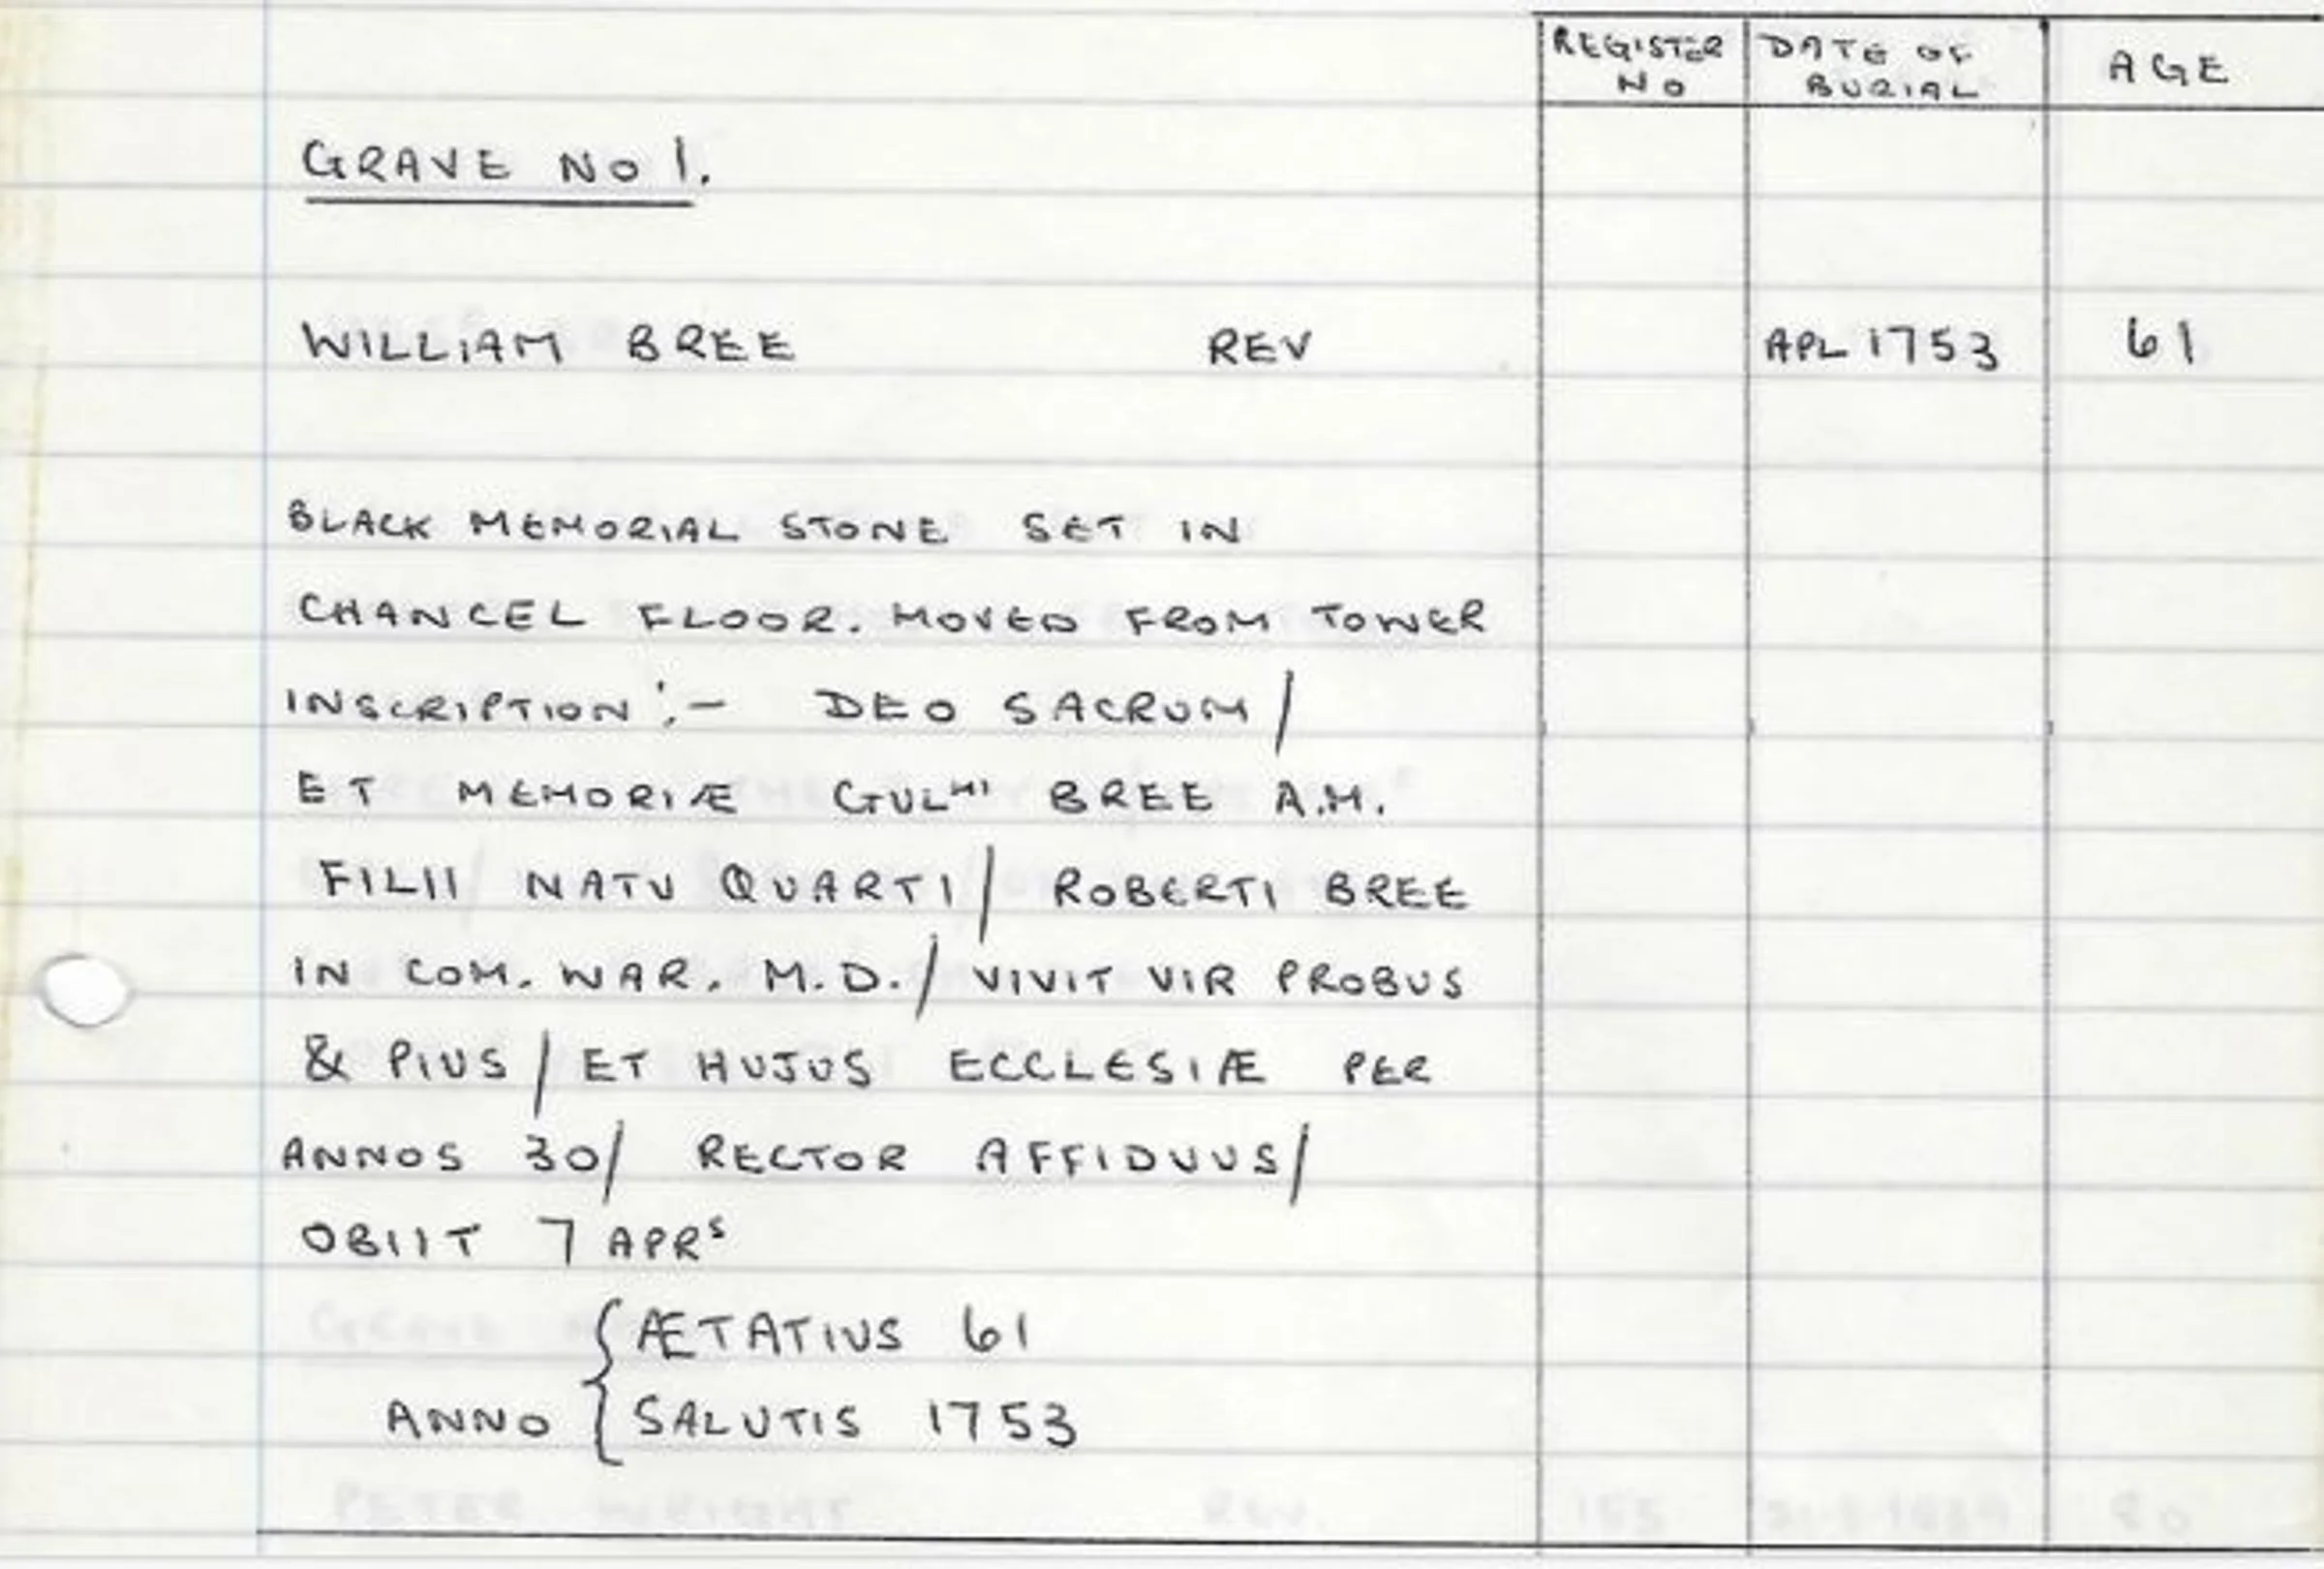 REGISTER NO
DATE OF BURIAL
AGE
GRAVE NO 1.
WILLIAM BREE REV APL 1753 61
BLACK MEMORIAL STONE SET IN
CHANCEL FLOOR. MOVED FROM TOWER
INSCRIPTION :- DEO SACRUM /
ET MEMORIÆ GULMI BREE A.M.
FILII NATU QUARTI / ROBERTI BREE
IN COM. WAR. M.D. / VIVIT VIR PROBUS
& PIUS / ET HUJUS ECCLESIÆ PER
ANNOS 30 / RECTOR AFFIDUUS /
OBIIT 7 APRS
ÆTATIUS 61
ANNO { SALUTIS 1753